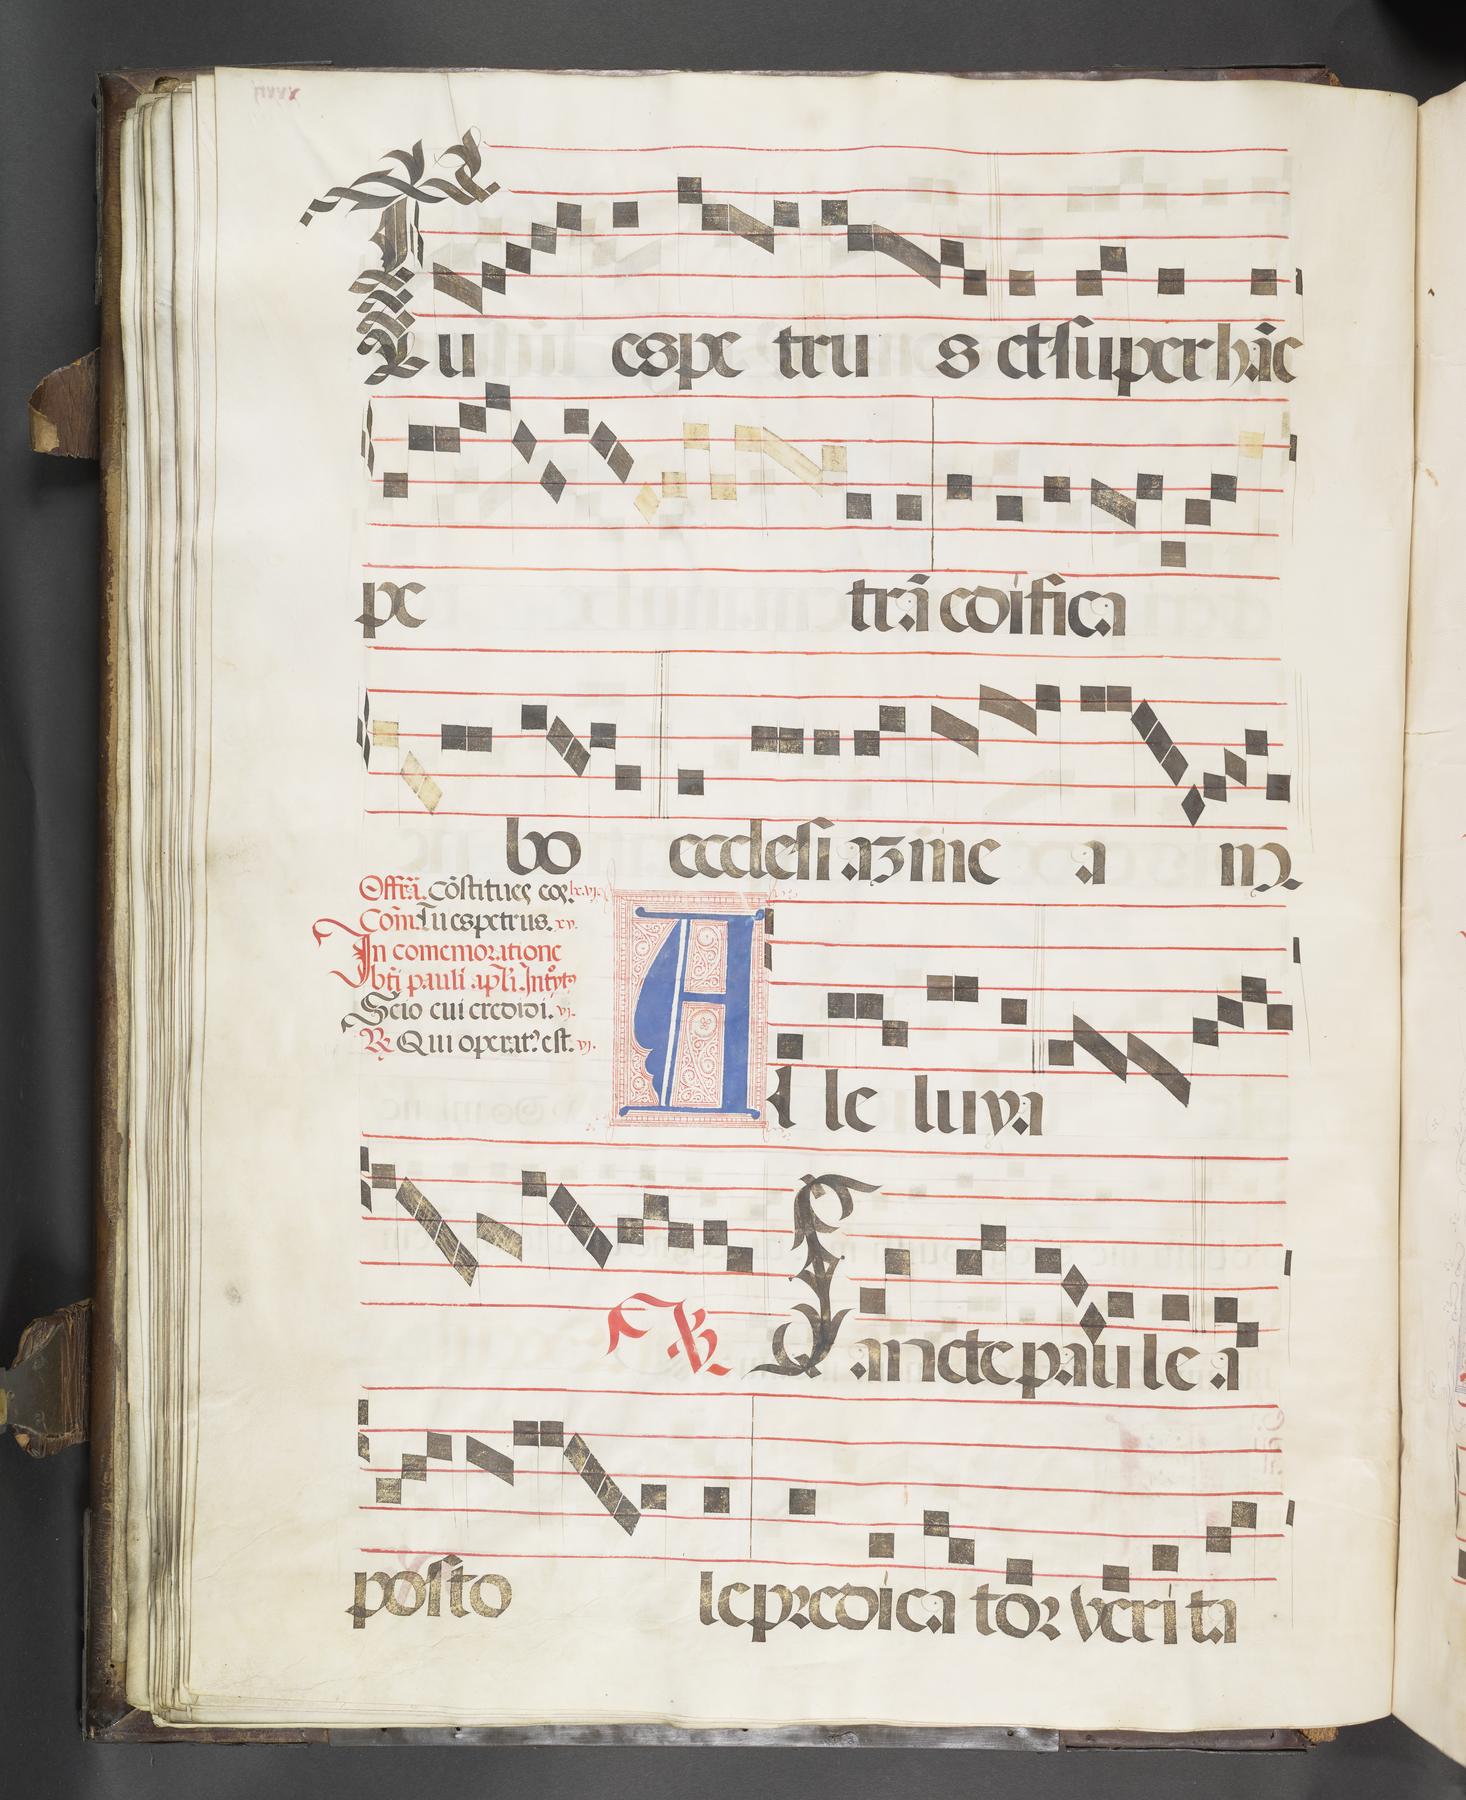 Tu es pe tru s et super hāc
pe trā edifica
bo ecclesi az me a m.
Offrã. Cōstitues eos. lx.vj.
Com̄. Tu es petrus. xv.
In comemoratione
bti pauli apłi. Introyt9
Scio cui credidi. vj.
R Qui operat9 est. vj.
A l le luya
V Sancte pau le a
posto le predica tor veri ta